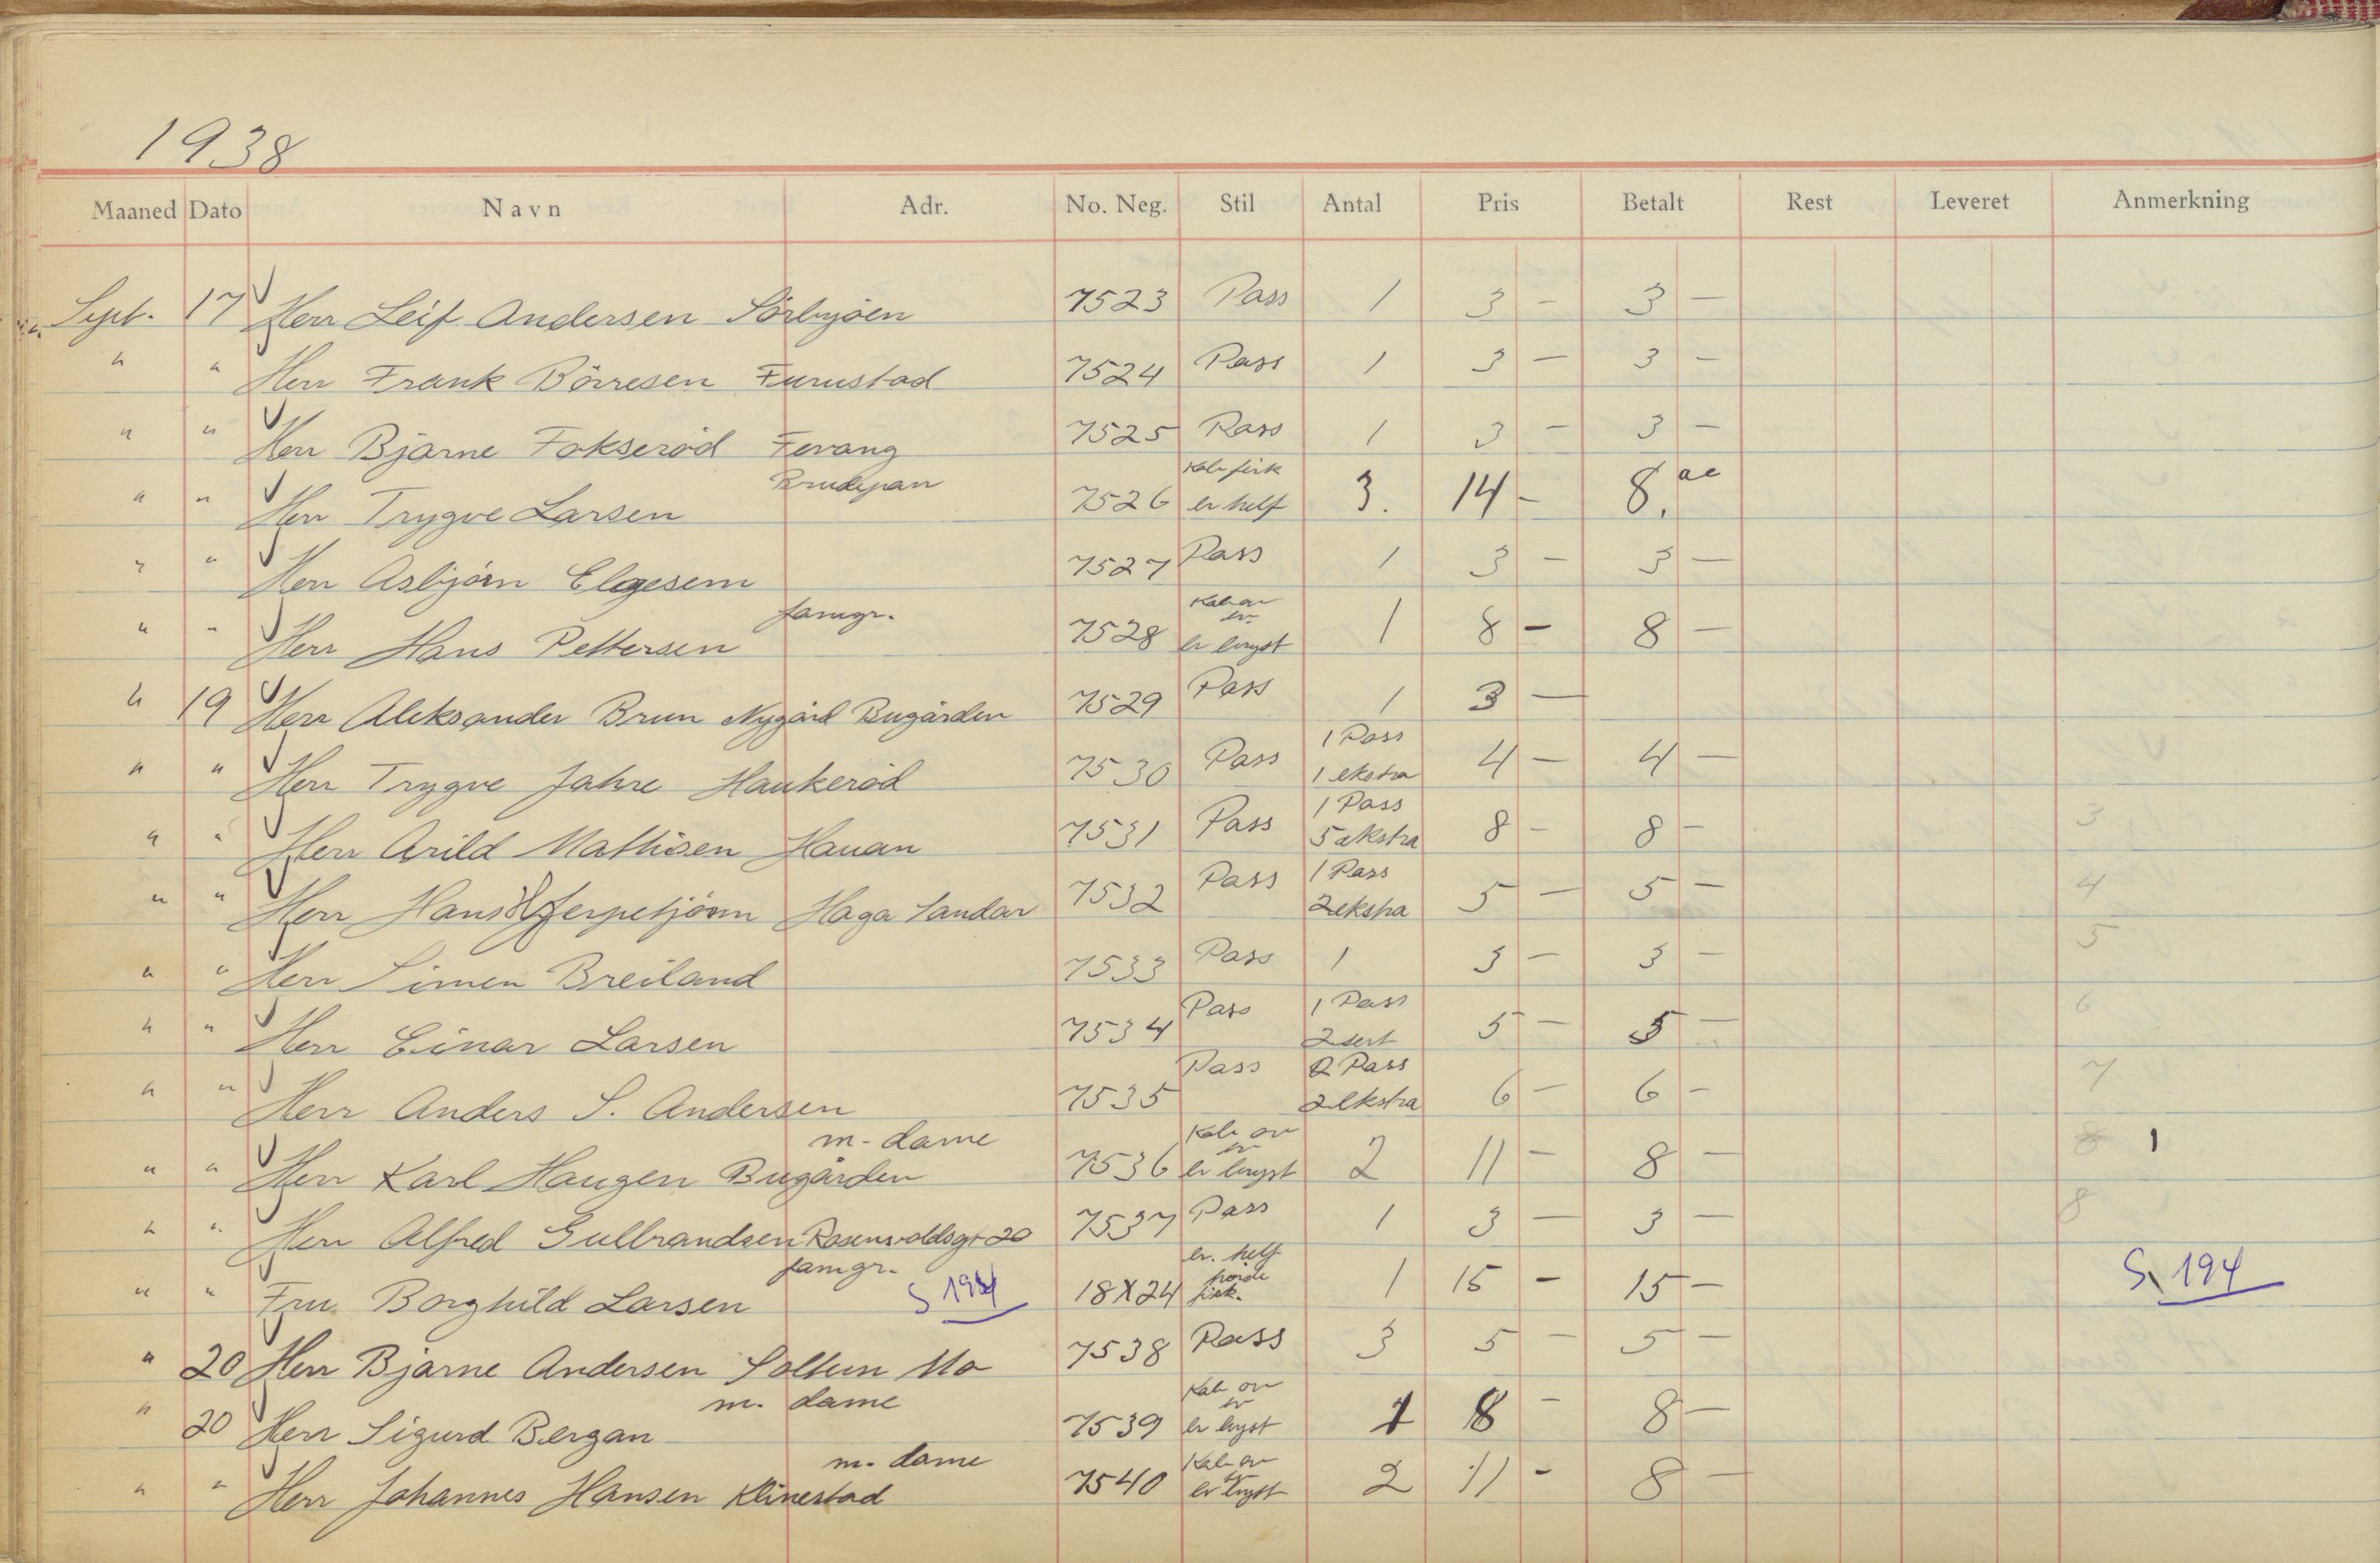 1938
Maaned Dato Navn Adr. No. Neg. Stil Antal Pris Betalt Rest Leveret Anmerkning
Sept. 17 Herr Leif Andersen Sörbyöen 7523 Pass 1 3 - 3 -
" " Herr Frank Börresen Furustad 7524 Pass 1 3 - 3 -
" " Herr Bjarne Fokseröd Fevang 7525 Pass 1 3 - 3 -
Brudepar Kab
" " Herr Trygve Larsen 7526 er helf 3. 14 - 8.
" " Herr Asbjörn Elgesem 7527 Pass 1 3 - 3 -
famgr. Kab
" " Herr Hans Pettersen 7528 er bryst 1 8 - 8 -
" 19 Herr Aleksander Brun Nygård Bugården 7529 Pass 1 3 -
1 Pass
" " Herr Trygve Jahre Haukeröd 7530 Pass 1 ekstra 4 - 4 -
1 Pass 3
" " Herr Arild Mathisen Hauan 7531 Pass 5 ekstra 8 - 8 -
1 Pass 4
" " Herr Hans Herpetjörn Haga Sandar 7532 Pass 2 ekstra 5 - 5 -
" " Herr Simen Breiland 7533 Pass 1 3 - 3 - 5
1 Pass 6
" " Herr Einar Larsen 7534 Pass 2 sert 5 - 5 -
2 Pass 7
" " Herr Anders S. Andersen 7535 Pass 2 ekstra 6 - 6 -
m. dame Kab 8 1
" " Herr Karl Haugen Bugården 7536 er bryst 2 11 - 8 -
" " Herr Alfred Gullbrandsen Rosenvoldsgt 20 7537 Pass 1 3 - 3 - 8
famgr. er. helf
" " Fru Borghild Larsen S 194 18X24 1 15 - 15 - S. 194
" 20 Herr Bjarne Andersen Soltun Mo 7538 Pass 3 5 - 5 -
m. dame Kab
" 20 Herr Sigurd Bergan 7539 er bryst 1 8 - 8 -
m. dame Kab
" " Herr Johannes Hansen Klinestad 7540 er bryst 2 11 - 8 -